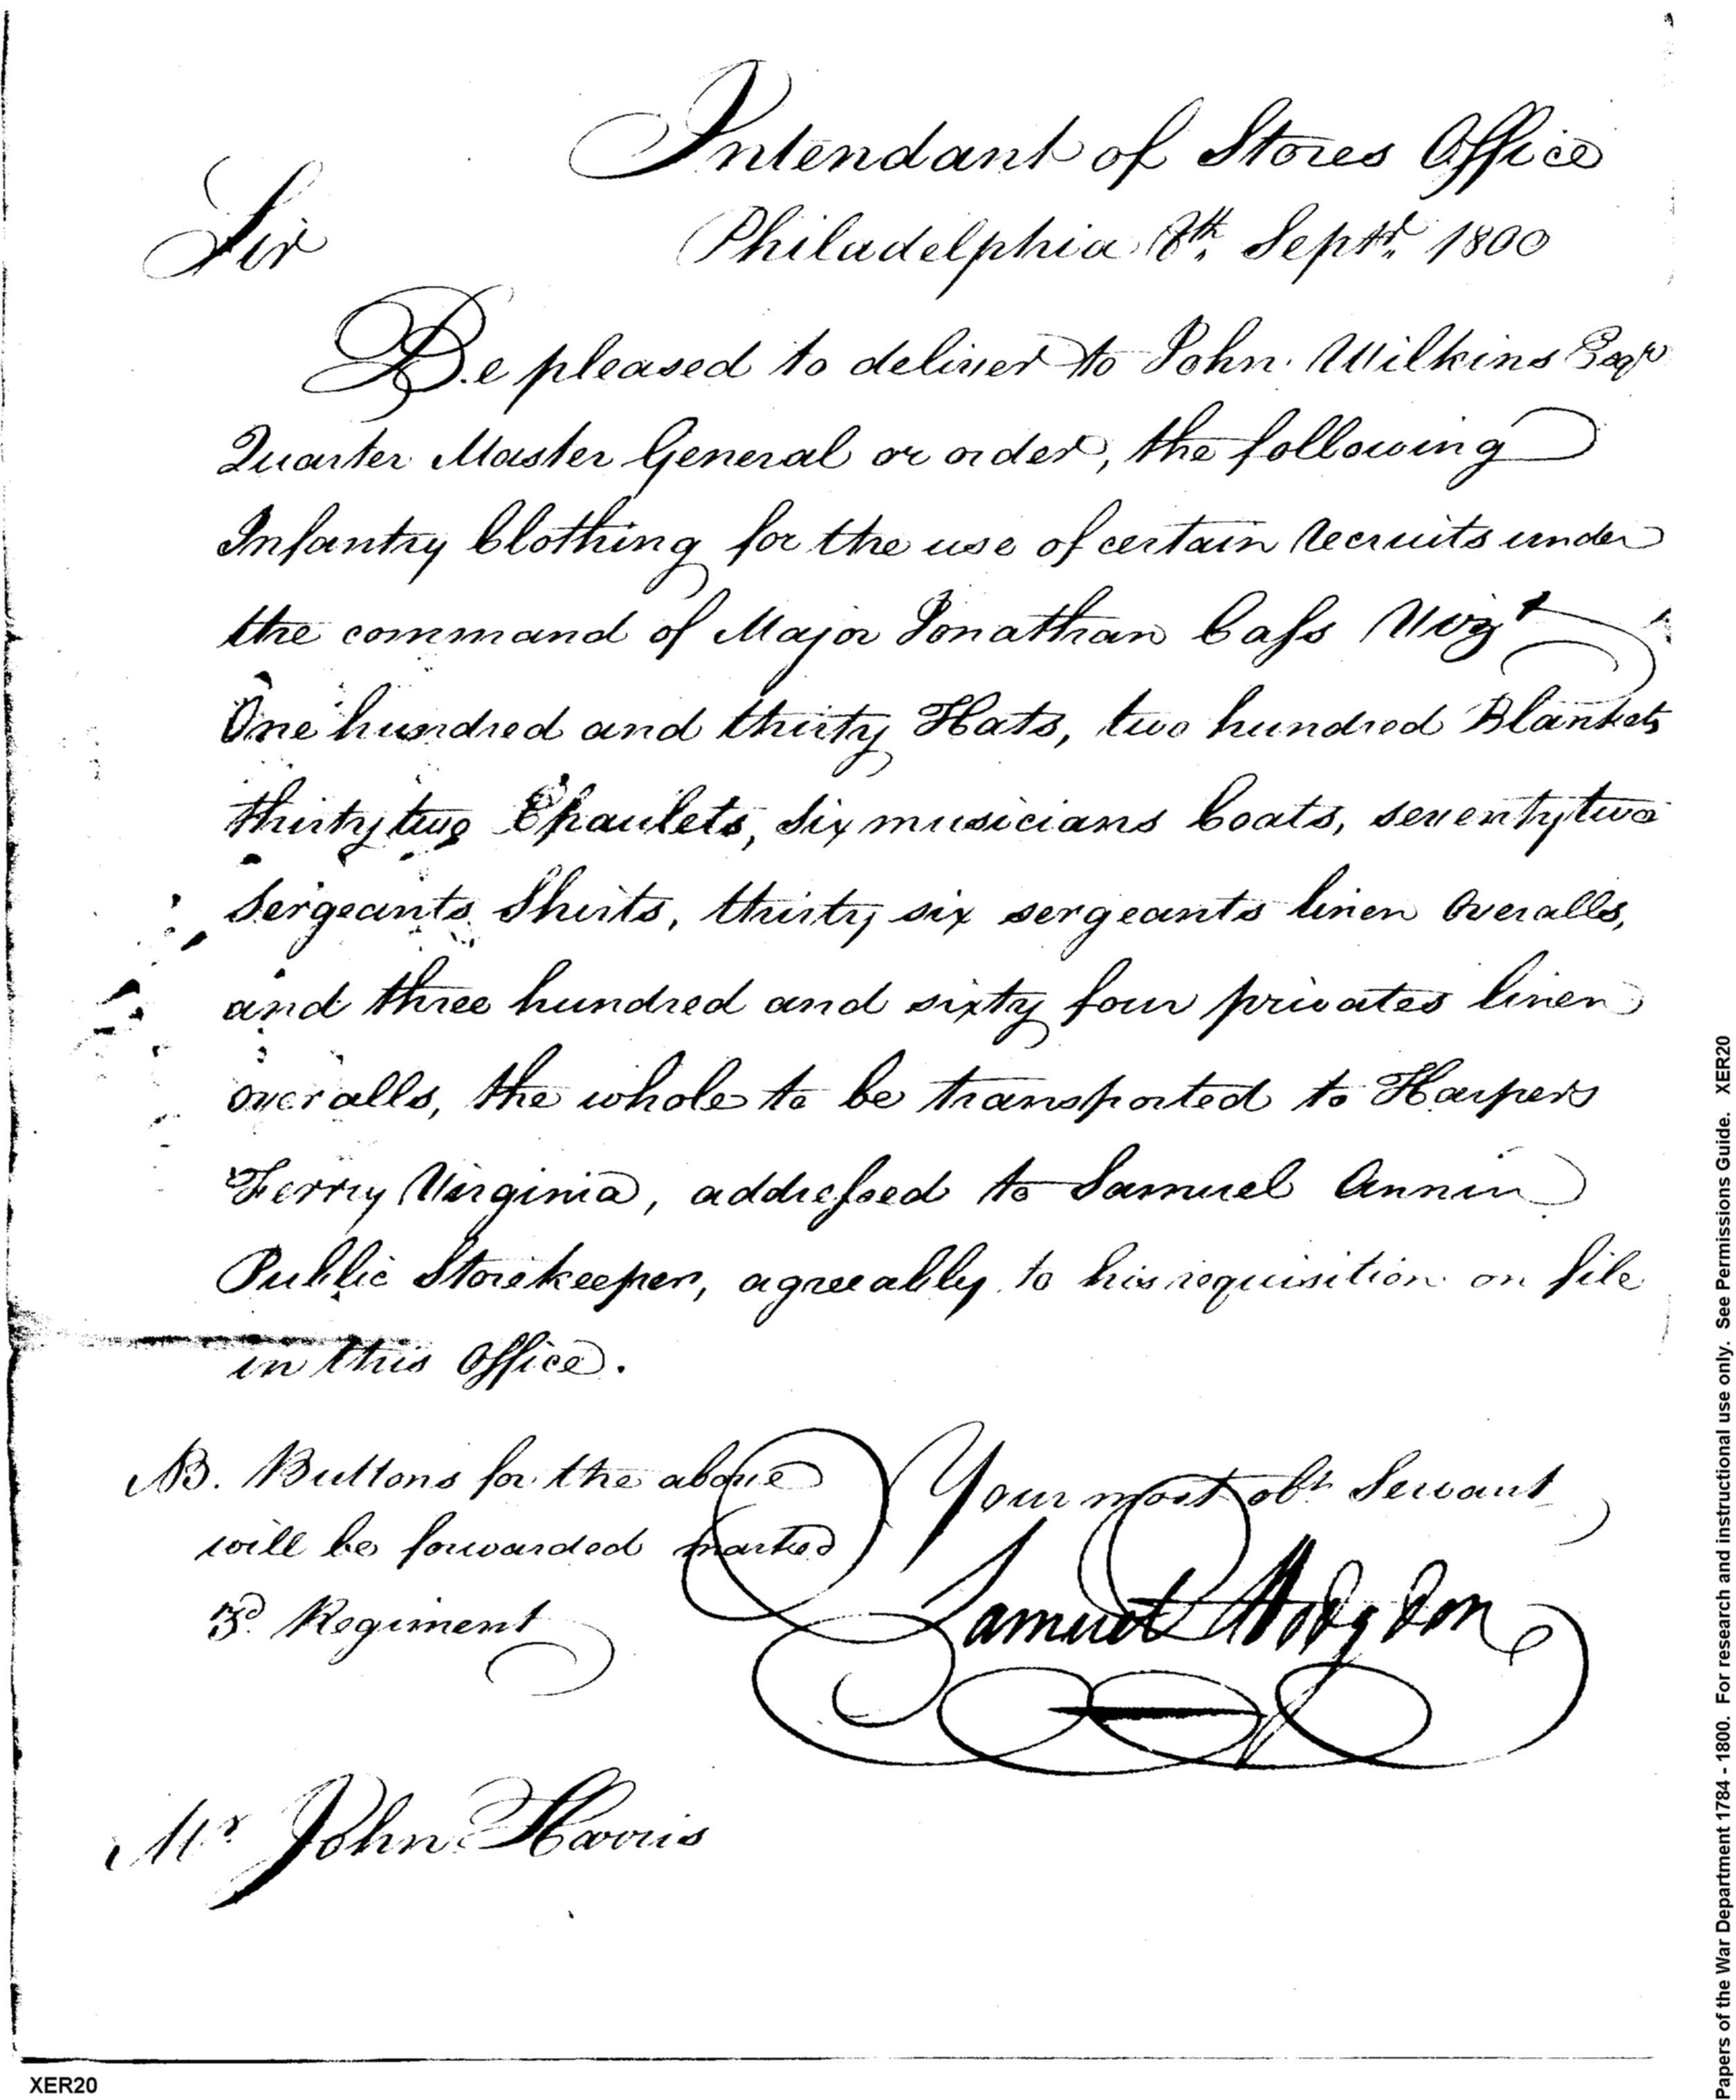 Intendant of Stores Office
Sir
Philadelphia 8th. Septr. 1800
Be pleased to deliver to John Wilkins Esqr
Quarter Master General or order, the following
Infantry Clothing for the use of certain recruits under
the command of Major Jonathan Cass Vizt
One hundred and thirty Hats, two hundred Blankets
thirty two Epaulets, six musicians Coats, seventy two
Sergeants Shirts, thirty six sergeants linen Overalls,
and three hundred and sixty four privates linen
overalls, the whole to be transported to Harpers
Ferry Virginia, addressed to Samuel Annin
Public Storekeeper, agreeably to his requisition on file
in this Office.
NB. Buttons for the above
will be forwarded marked
3d. Regiment
Your most obt Servant
Samuel Hodgdon
Mr John Harris
XER20
Papers of the War Department 1784 - 1800. For research and instructional use only. See Permissions Guide. XER20